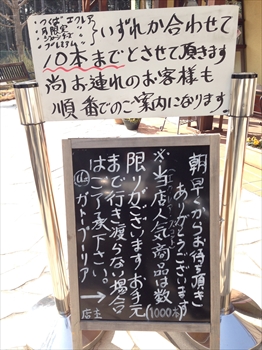 つくばエクレア
月限定
プレミアム
いずれか合わせて
10本までとさせて頂きます
尚お連れのお客様も
順番でのご案内になります。
朝早くからお待ち頂き
ありがとうございます
※当店人気商品は数
(1000本)
限りがございますお手元
まで行き渡らない場合
はご了承下さい。→
㊟ガトープーリア
店主